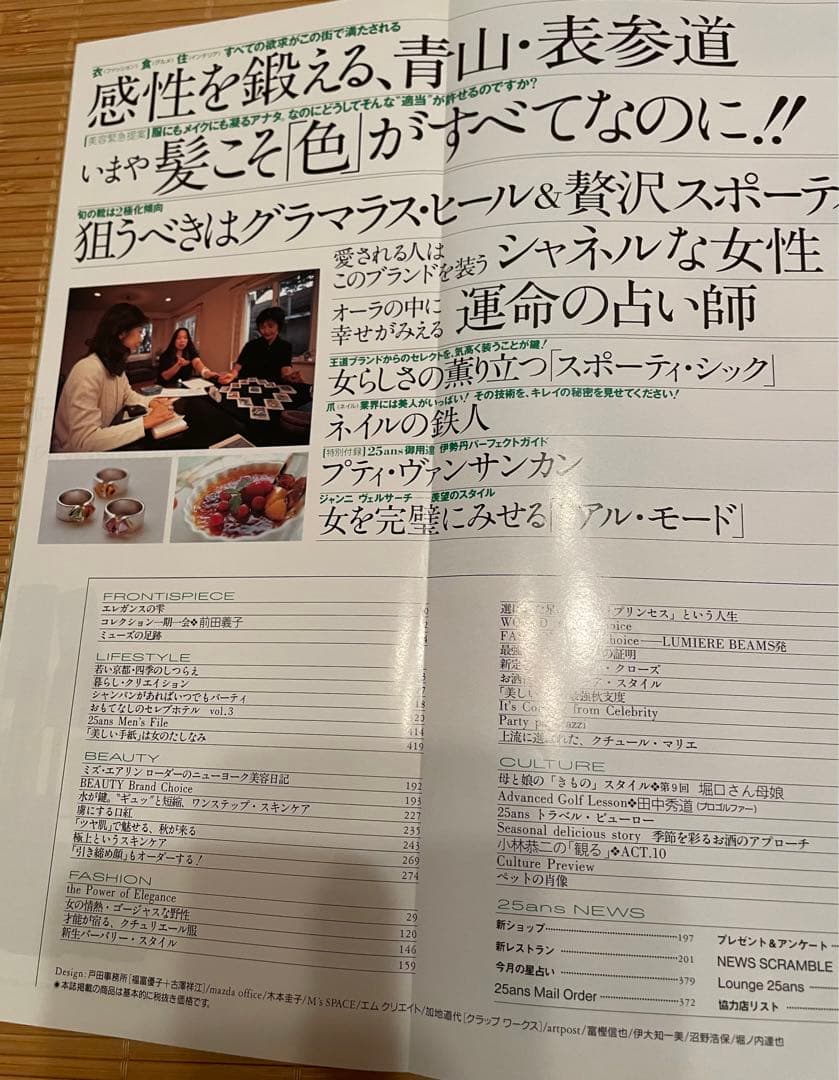 衣(ファッション) 食(グルメ) 住(インテリア) すべての欲求がこの街で満たされる
感性を鍛える、青山・表参道
[美容緊急提案]服にもメイクにも凝るアナタ。なのにどうしてそんな“適当”が許せるのですか?
いまや髪こそ「色」がすべてなのに!!
旬の靴は2極化傾向
狙うべきはグラマラス・ヒール&贅沢スポーテ
愛される人は
このブランドを装う
シャネルな女性
オーラの中に
幸せがみえる
運命の占い師
王道ブランドからのセレクトを、気高く装うことが鍵!
女らしさの薫り立つ「スポーティ・シック」
爪(ネイル)業界には美人がいっぱい! その技術を、キレイの秘密を見せてください!
ネイルの鉄人
[特別付録]25ans御用達 伊勢丹パーフェクトガイド
プティ・ヴァンサンカン
ジャンニ ヴェルサーチ 羨望のスタイル
女を完璧にみせる「アル・モード」
FRONTISPIECE
エレガンスの雫
コレクション一期一会❖前田義子
ミューズの足跡
LIFESTYLE
若い京都・四季のしつらえ
暮らし・クリエイション
シャンパンがあればいつでもパーティ 18
おもてなしのセレブホテル vol.3 320
25ans Men's File 414
「美しい手紙」は女のたしなみ 419
BEAUTY
ミズ・エアリン ローダーのニューヨーク美容日記
BEAUTY Brand Choice 192
水が鍵。“ギュッ”と短縮、ワンステップ・スキンケア 193
虜にする口紅 227
「ツヤ肌」で魅せる、秋が来る 235
極上というスキンケア 243
「引き締め顔」もオーダーする! 269
274
FASHION
the Power of Elegance
女の情熱・ゴージャスな野性 29
才能が宿る、クチュリエール服 120
新生バーバリー・スタイル 146
159
選ばれた星 プリンセス」という人生
WO oice
FA hoice──LUMIERE BEAMS発
最強 の証明
新定 ・クローズ
お酒 ア・スタイル
「美しい 最強秋支度
It's Co from Celebrity
Party p azzi
上流に選ばれた、クチュール・マリエ
CULTURE
母と娘の「きもの」スタイル❖第9回 堀口さん母娘
Advanced Golf Lesson❖田中秀道(プロゴルファー)
25ans トラベル・ビューロー
Seasonal delicious story 季節を彩るお酒のアプローチ
小林恭二の「観る」❖ACT.10
Culture Preview
ペットの肖像
25ans NEWS
新ショップ 197
新レストラン 201
今月の星占い 379
25ans Mail Order 372
プレゼント&アンケート
NEWS SCRAMBLE
Lounge 25ans
協力店リスト
Design:戸田事務所[福富優子+古澤祥江]/mazda office/木本圭子/M's SPACE/エム クリエイト/加地道代[クラップ ワークス]/artpost/冨樫信也/伊大知一美/沼野浩保/堀ノ内達也
◉本誌掲載の商品は基本的に税抜き価格です。